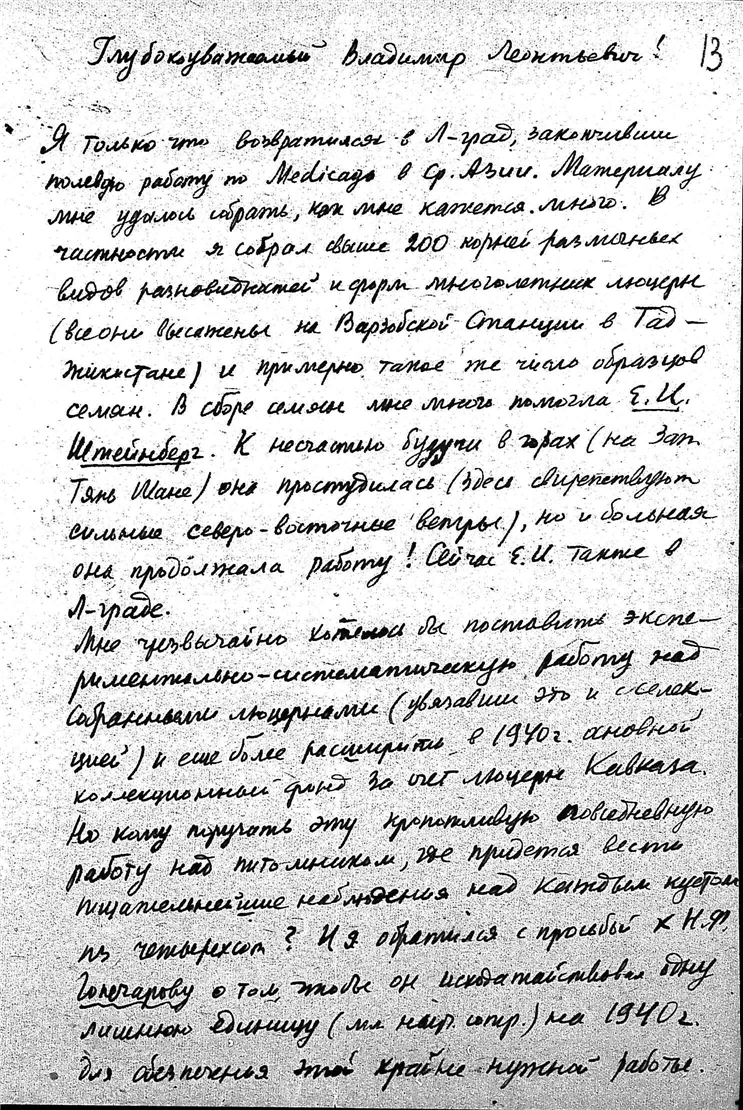 Глубокоуважаемый Владимир Леонтьевич! 13
Я только что возвратился в Л-град, закончивши
полевую работу по Medicago в Ср. Азии. Материалу
мне удалось собрать, как мне кажется много. В
частности я собрал свыше 200 корней различных
видов разновидностей и форм многолетних люцерн
(все они высажены на Варзобской Станции в Тад-
жикистане) и примерно такое же число образцов
семян. В сборе семян мне много помогла Е.И.
Штейнберг. К несчастью будучи в горах (на Зап.
Тянь Шане) она простудилась (здесь свирепствуют
сильные северо-восточные ветры), но и больная
она продолжала работу! Сейчас Е.И. также в
Л-граде.
Мне чрезвычайно хотелось бы поставить экспе-
риментально-систематическую работу над
собранными люцернами (увязавши это и с селек-
цией) и еще более расширить в 1940 г. основной
коллекционный фонд за счет люцерн Кавказа.
Но кому поручать эту кропотливую повседневную
работу над питомником, где придется вести
тщательнейшие наблюдения над каждым кустом
из четырехсот? И я обратился с просьбой к Н.Ф.
Гончарову о том, чтобы он исходатайствовал одну
лишнюю единицу (мл. научн. сотр.) на 1940 г.
для обеспеченья этой крайне нужной работы.